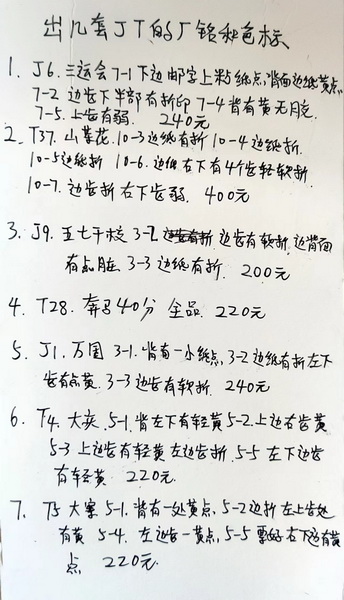 出几套JT的厂铭和色标
1. J6. 三运会 7-1下边邮字上粘纸点,背面边纸黄点
7-2 边齿下半部有折印 7-4背有黄无月完
7-5. 上齿有弱. 240元
2. T37. 山茶花. 10-3边纸有折 10-4边纸折.
10-5边纸折 10-6. 边纸右下有4个齿轻软折.
10-7. 边齿折 右下齿弱. 400元
3. J9. 五七干校 3-2 边齿有软折. 边背面
有点脏. 3-3 边纸有折. 200元
4. T28. 奔马40分 全品. 220元
5. J1. 万国 3-1. 背有一小纸点, 3-2边纸有折左下
齿有点黄. 3-3边齿有软折. 240元
6. T4. 大庆. 5-1. 背左下有轻黄 5-2.上边右齿黄
5-3 上边齿有轻黄 左边齿折. 5-5 左下边齿
有轻黄. 220元.
7. T5 大寨 5-1. 背有一处黄点, 5-2边折 左上齿处
有黄 5-4. 左边齿一黄点, 5-5 右下边有黄
点 220元.